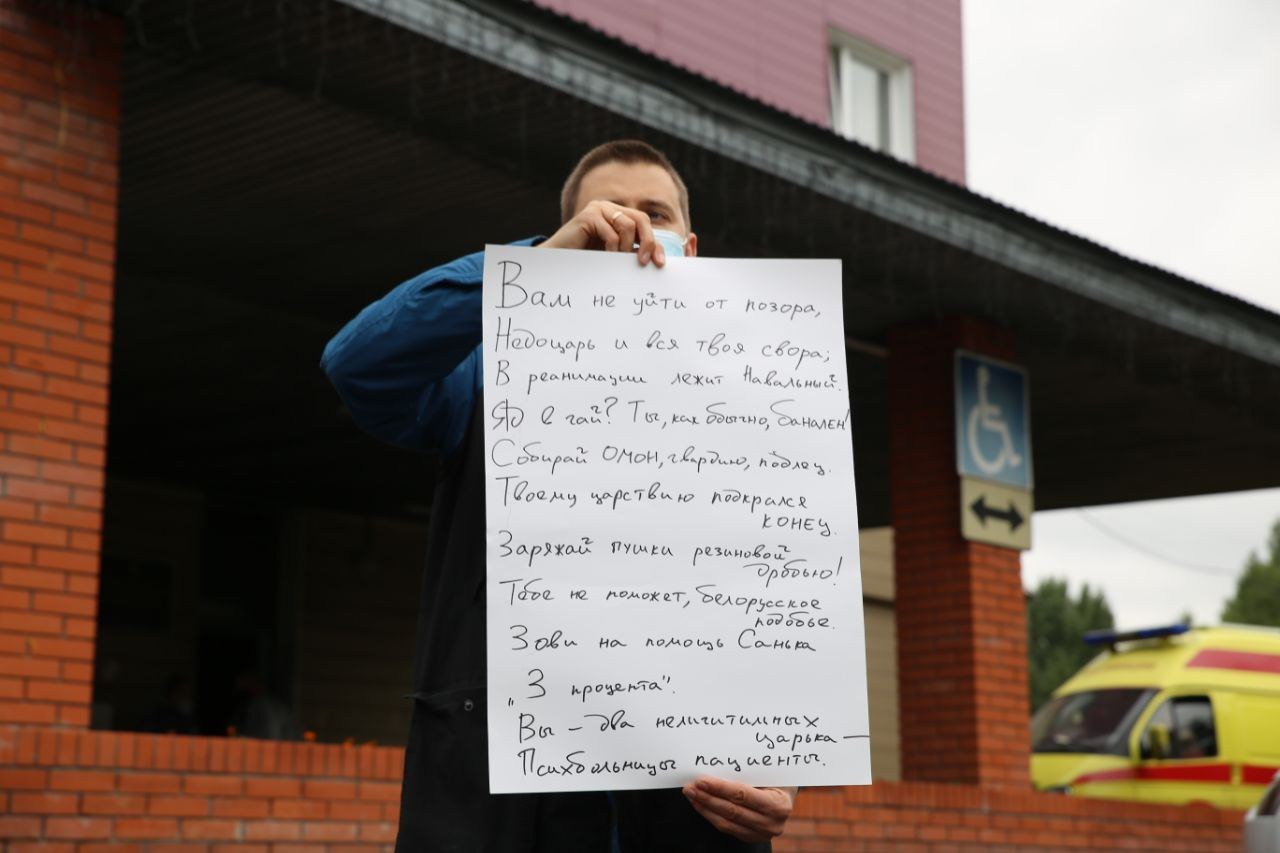 Вам не уйти от позора,
Недоцарь и вся твоя свора;
В реанимации лежит Навальный.
Яд в чай? Ты, как обычно, банален!
Собирай ОМОН, гвардию, подлец.
Твоему царствию подкрался
конец.
Заряжай пушки резиновой
дробью!
Тебе не поможет, белорусское
подобье.
Зови на помощь Санька
„3 процента".
Вы – два нелигитимных
царька –
Психбольницы пациенты.